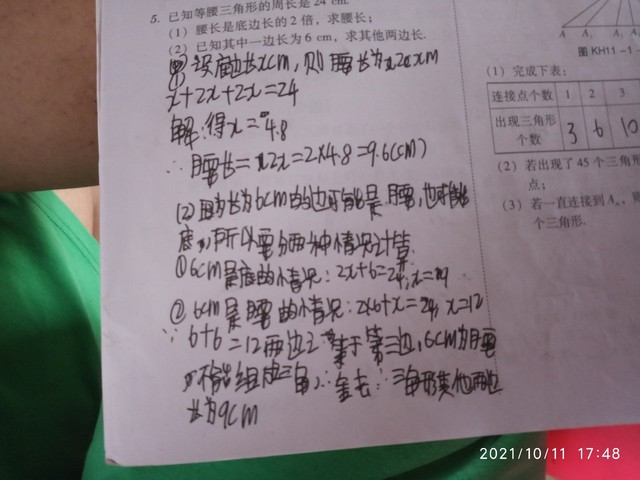 5. 已知等腰三角形的周长是24 cm.
(1) 腰长是底边长的2倍，求腰长；
(2) 已知其中一边长为6 cm，求其他两边长.
设底边长xcm，则腰长为2xcm
x+2x+2x=24
解：得x=4.8
∴腰长=2x=2×4.8=9.6(cm)
(2) 因为长为6cm的边可能是腰，也可能
底，所以要分两种情况计算
①6cm是底的情况：2x+6=24，x=9
②6cm是腰的情况：2×6+x=24，x=12
∵6+6=12两边之等于第三边，6cm为腰
不能组成三角，∴舍去∴三角形其他两边
长为9cm
A A₁
图 KH11－1－
(1) 完成下表：
连接点个数 1 2 3
出现三角形
个数 3 6 10
(2) 若出现了45个三角形
点；
(3) 若一直连接到Aₙ，则
个三角形.
2021/10/11 17:48